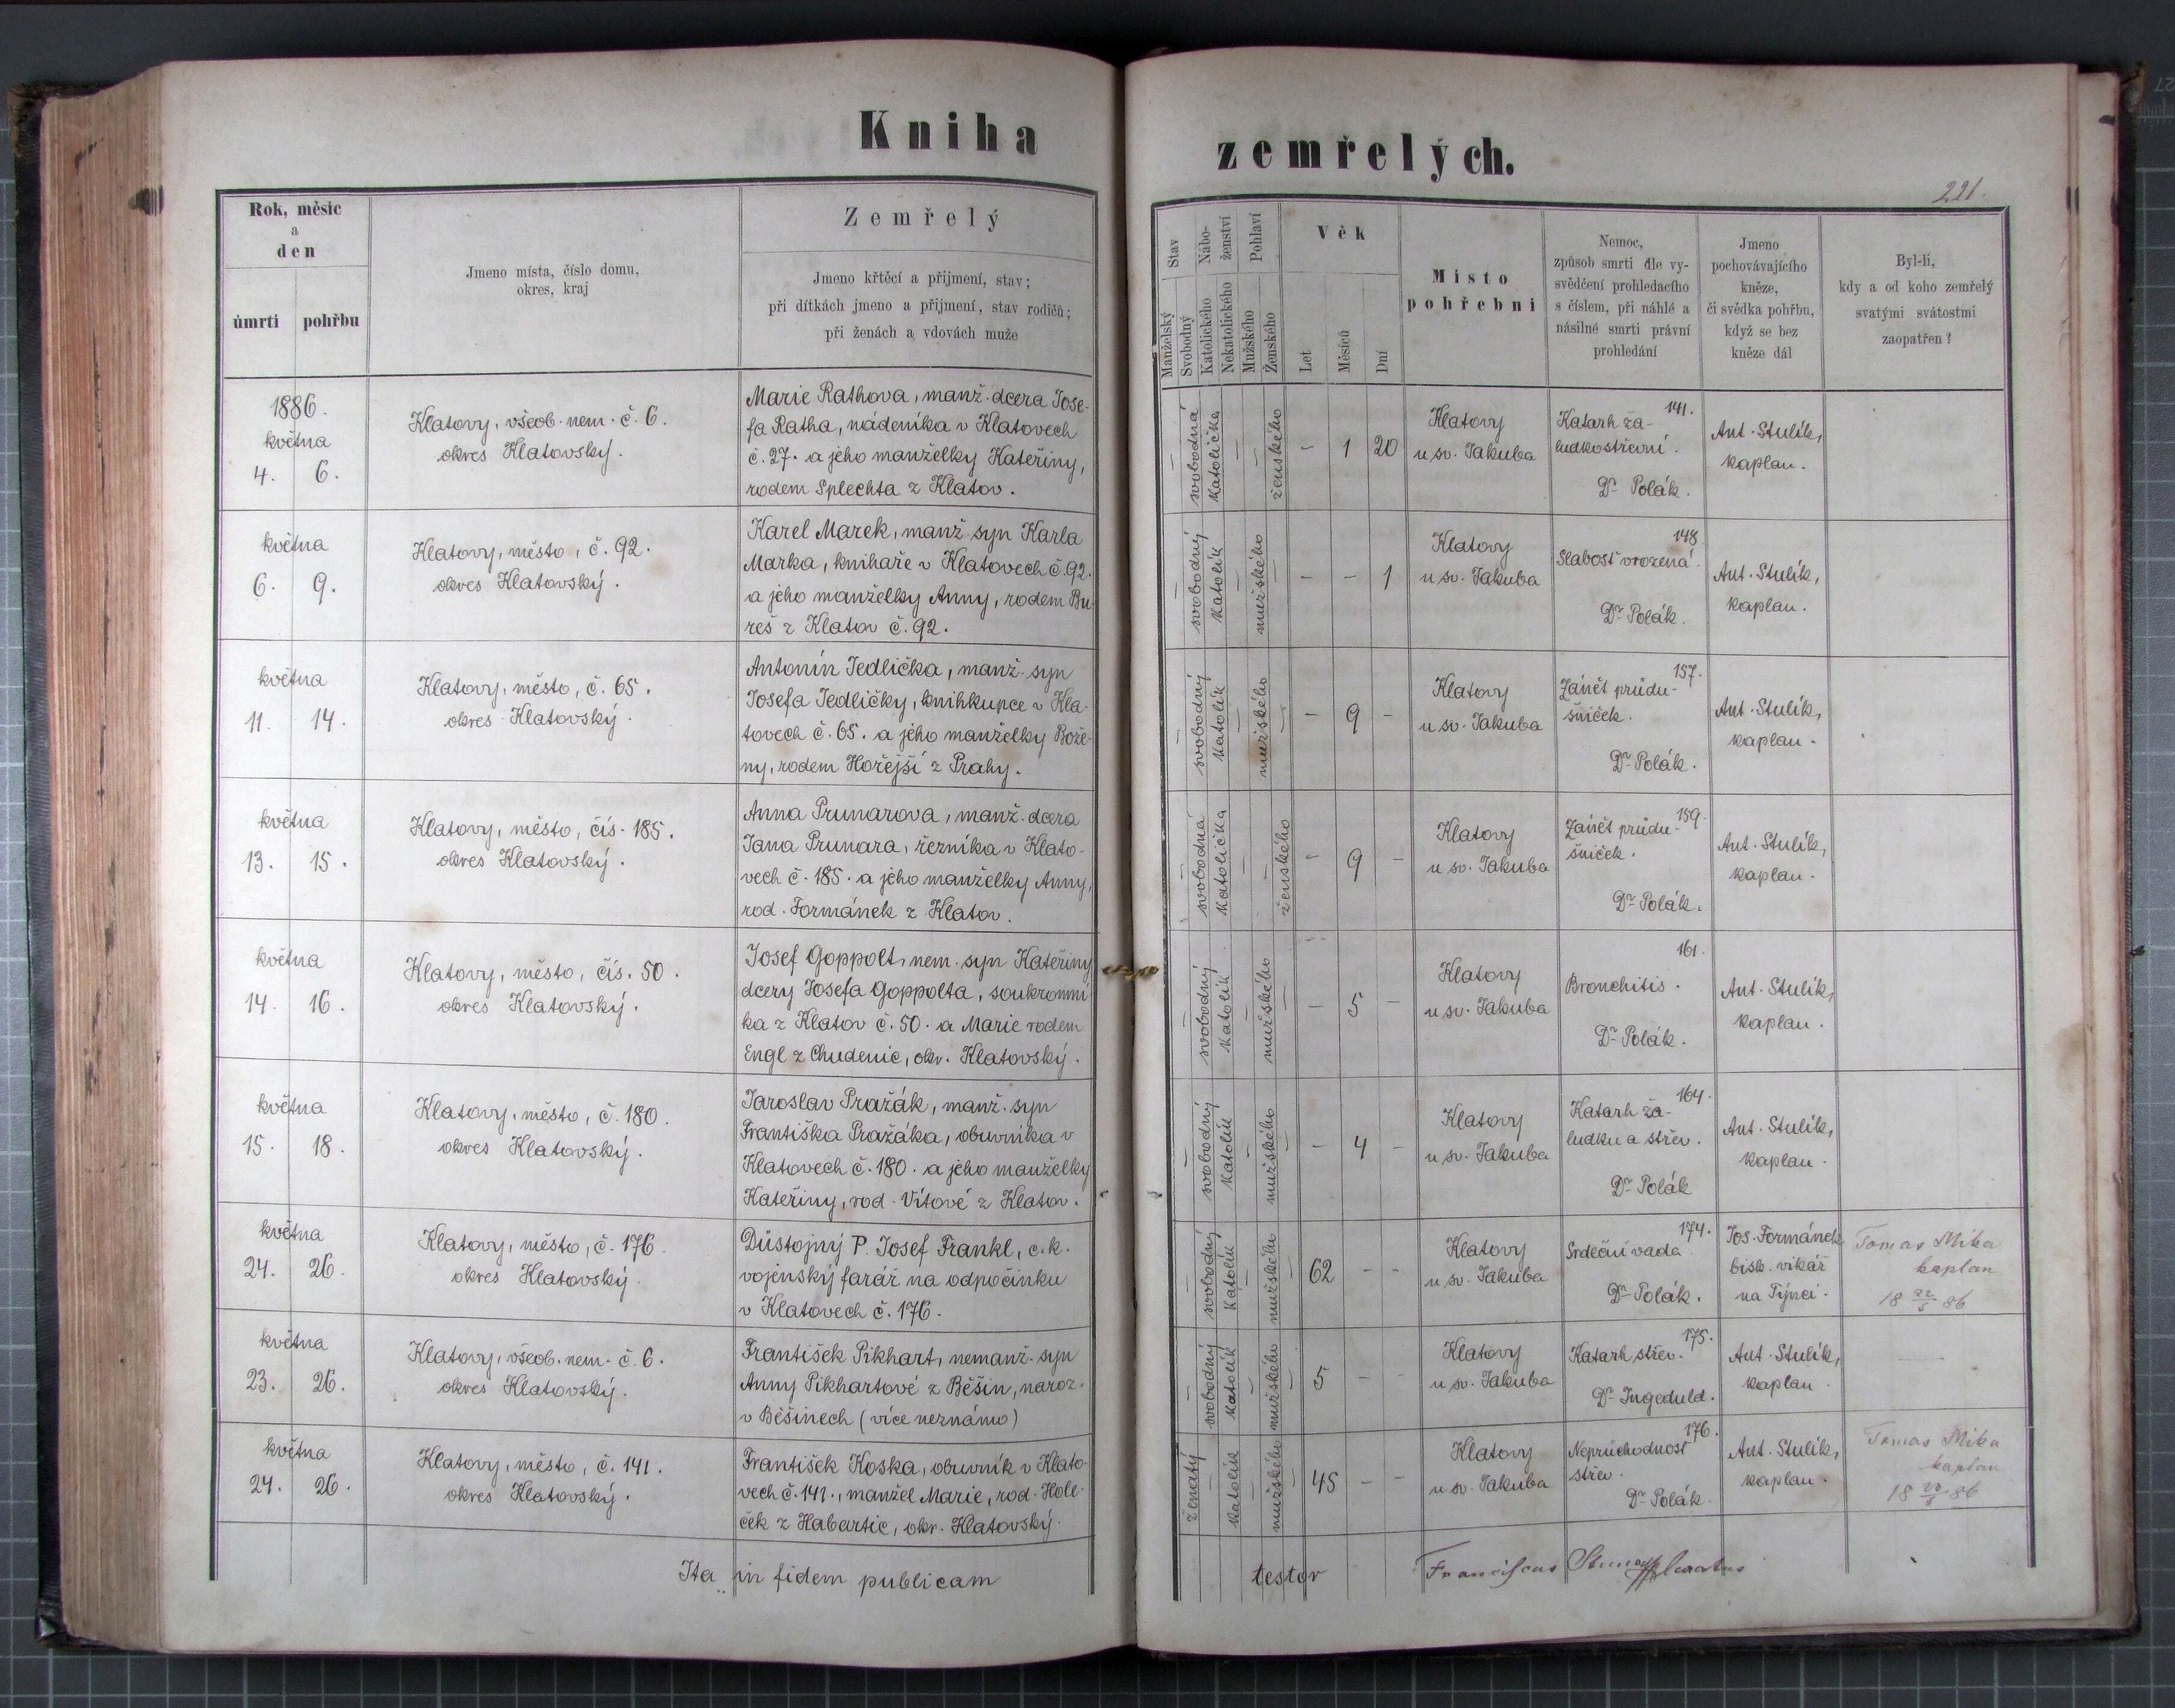 Kniha
zemřelých.
221.
Rok, měsíc
a
den
úmrtí
pohřbu
Jmeno místa, číslo domu,
okres, kraj
Zemřelý
Jmeno křtěcí a příjmení, stav;
při dítkách jmeno a příjmení, stav rodičů;
při ženách a vdovách muže
Stav
Manželský
Svobodný
Nábo-
ženství
Katolického
Nekatolického
Pohlaví
Mužského
Ženského
Věk
Let
Měsíců
Dní
Místo
pohřební
Nemoc,
způsob smrti dle vy-
svědčení prohledacího
s číslem, při náhlé a
násilné smrti právní
prohledání
Jmeno
pochovávajícího
kněze,
či svědka pohřbu,
když se bez
kněze dál
Byl-li,
kdy a od koho zemřelý
svatými svátostmi
zaopatřen?
1886.
května
4. 6.
Klatovy, všeob. nem. č. 6.
okres Klatovský.
Marie Rathova, manž. dcera Jose-
fa Ratha, nádeníka v Klatovech
č. 27. a jeho manželky Kateřiny,
rodem Splechta z Klatov.
svobodná
Katolička
ženského
- 1 20
Klatovy
u sv. Jakuba
141.
Katarh ža-
ludkostřevní.
Dr Polák.
Ant. Stulík,
kaplan.
května
6. 9.
Klatovy, město, č. 92.
okres Klatovský.
Karel Marek, manž syn Karla
Marka, knihaře v Klatovech č. 92.
a jeho manželky Anny, rodem Bu-
reš z Klatov č. 92.
svobodný
Katolík
mužského
- - 1
Klatovy
u sv. Jakuba
148
Slabost vrozená.
Dr Polák.
Ant. Stulík,
kaplan.
května
11. 14.
Klatovy, město, č. 65.
okres Klatovský.
Antonín Jedlička, manž. syn
Josefa Jedličky, knihkupce v Kla-
tovech č. 65. a jeho manželky Bože-
ny, rodem Hořejší z Prahy.
svobodný
Katolík
mužského
- 9 -
Klatovy
u sv. Jakuba
157.
Zánět průdu-
šniček.
Dr Polák.
Ant. Stulík,
kaplan.
května
13. 15.
Klatovy, město, čís. 185.
okres Klatovský.
Anna Prunarova, manž. dcera
Jana Prunara, řezníka v Klato-
vech č. 185. a jeho manželky Anny,
rod. Formánek z Klatov.
svobodná
Katolička
ženského
- 9 -
Klatovy
u sv. Jakuba
159.
Zánět průdu-
šniček.
Dr Polák.
Ant. Stulík,
kaplan.
května
14. 16.
Klatovy, město, čís. 50.
okres Klatovský.
Josef Goppolt, nem. syn Kateřiny
dcery Josefa Goppolta, soukromní-
ka z Klatov č. 50. a Marie rodem
Engl z Chudenic, okr. Klatovský.
svobodný
Katolík
mužského
- 5 -
Klatovy
u sv. Jakuba
161.
Bronchitis.
Dr Polák.
Ant. Stulík,
kaplan.
května
15. 18.
Klatovy, město, č. 180.
okres Klatovský.
Jaroslav Pražák, manž. syn
Františka Pražáka, obuvníka v
Klatovech č. 180. a jeho manželky
Kateřiny, rod. Vítové z Klatov.
svobodný
Katolík
mužského
- 4 -
Klatovy
u sv. Jakuba
164.
Katarh ža-
ludku a střev.
Dr Polák
Ant. Stulík,
kaplan.
května
24. 26.
Klatovy, město, č. 176.
okres Klatovský.
Důstojný P. Josef Frankl, c. k.
vojenský farář na odpočinku
v Klatovech č. 176.
svobodný
Katolík
mužského
62 - -
Klatovy
u sv. Jakuba
174.
Srdeční vada
Dr Polák.
Jos. Formánek
bisk. vikář
na Týnci.
Tomas Mika
kaplan
18 22/5 86
května
23. 26.
Klatovy, všeob. nem. č. 6.
okres Klatovský.
František Pikhart, nemanž. syn
Anny Pikhartové z Běšin, naroz.
v Běšinech (více neznámo)
svobodný
Katolík
mužského
5 - -
Klatovy
u sv. Jakuba
175.
Katarh střev.
Dr Ingeduld.
Ant. Stulík,
kaplan.
května
24. 26.
Klatovy, město, č. 141.
okres Klatovský.
František Koska, obuvník v Klato-
vech č. 141., manžel Marie, rod. Hole-
ček z Habartic, okr. Klatovský.
ženatý
Katolík
mužského
45 - -
Klatovy
u sv. Jakuba
176.
Neprůchodnost
střev.
Dr Polák.
Ant. Stulík,
kaplan.
Tomas Mika
kaplan
Ita in fidem publicam
testor
Franciscus